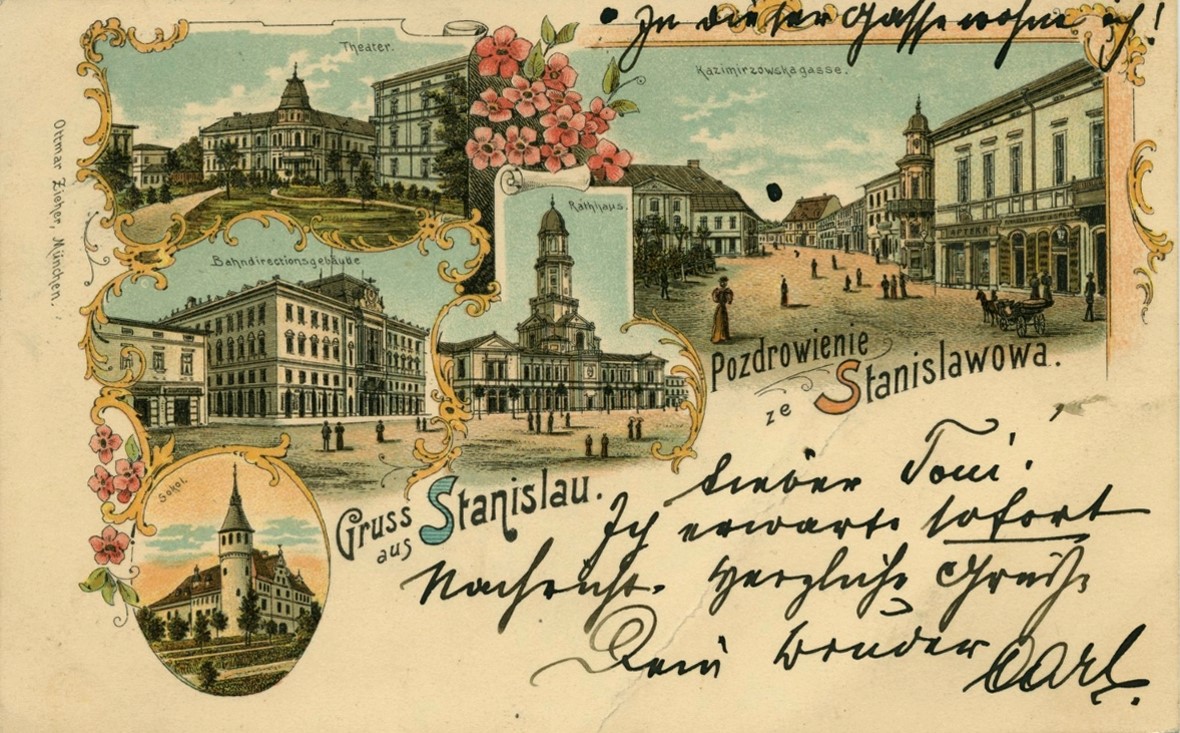 • In dieser Gasse wohne ich!
Theater.
Kazimirzowskagasse.
Ottmar Zieher, München.
Rathhaus.
Bahndirectionsgebäude
APTEKA
Pozdrowienie
ze Stanislawowa.
Sokol.
Gruss
aus Stanislau.
Lieber Toni!
Ich erwarte sofort
Nachricht. Herzliche Grüße
Dein Bruder Carl.